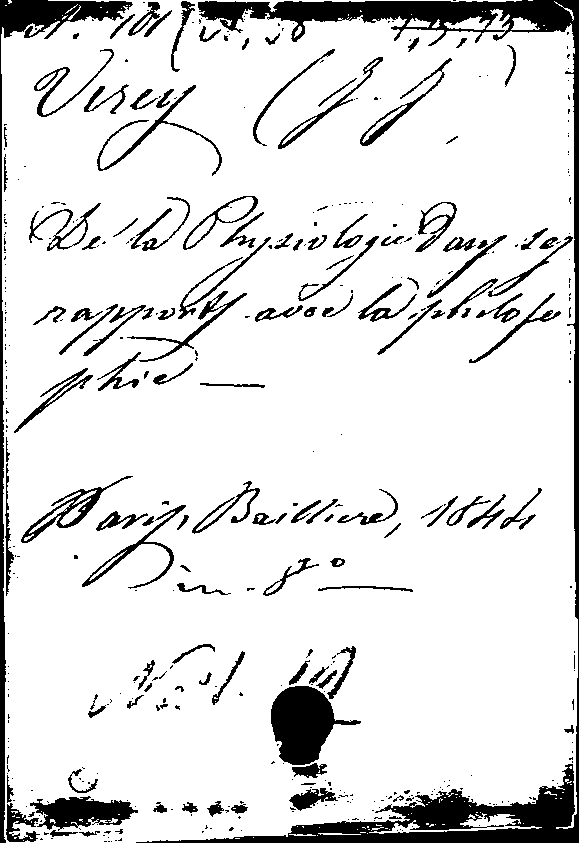 Virey (J. J.
De la Physiologie dans ses
rapports avec la philoso
phie —
Paris, Baillière, 1844
in-8º —